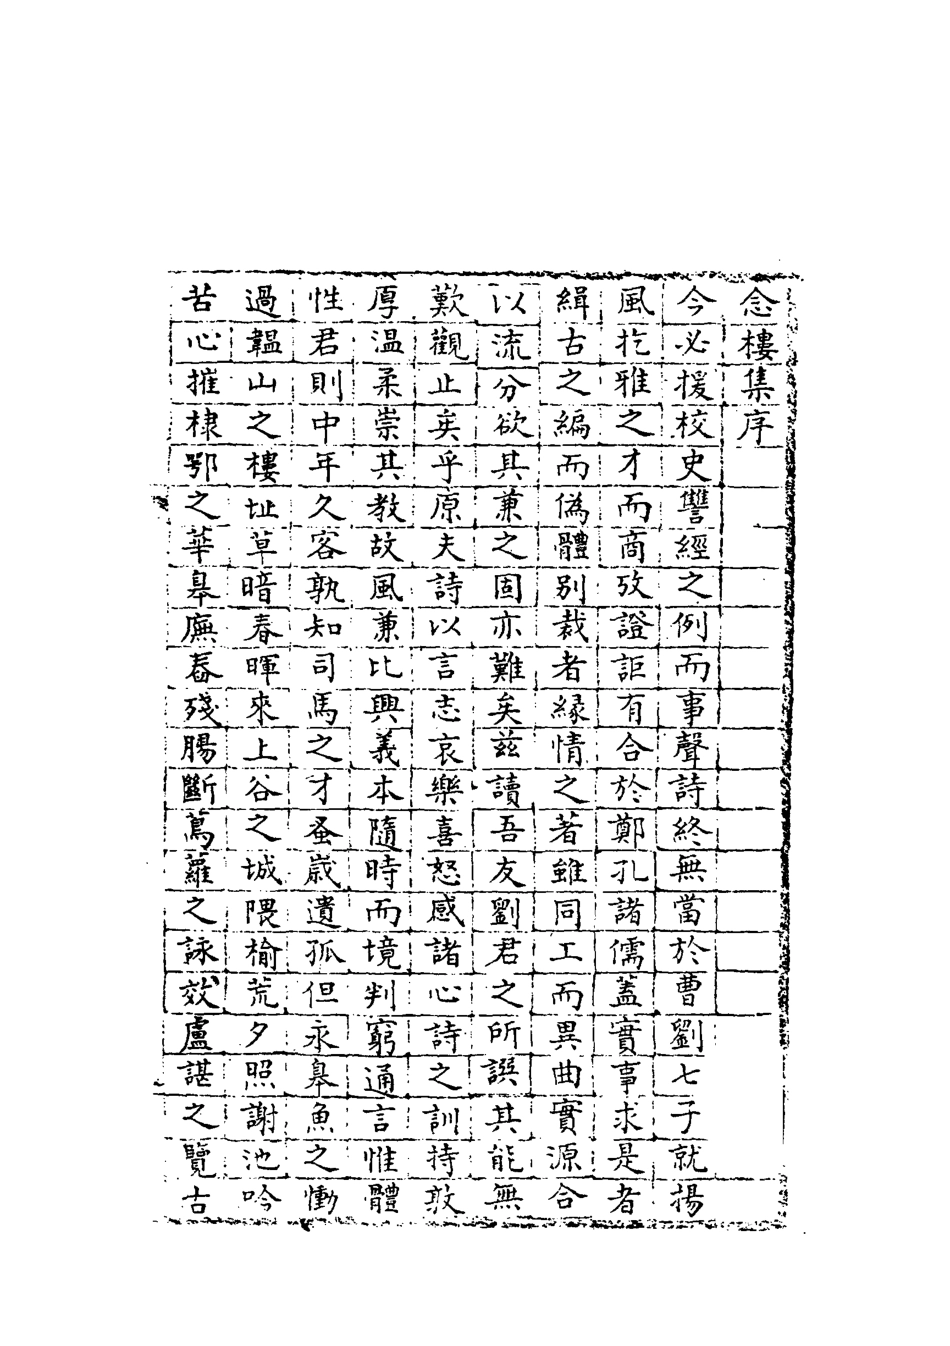 念樓集序
今必援校史讐經之例而事聲詩終無當於曹劉七子就揚
風扢雅之才而商攷證詎有合於鄭孔諸儒蓋實事求是者
緝古之編而偽體別裁者緣情之著雖同工而異曲實源合
以流分欲其兼之固亦難矣茲讀吾友劉君之所譔其能無
歎觀止矣乎原夫詩以言志哀樂喜怒感諸心詩之訓持敦
厚温柔崇其教故風兼比興義本隨時而境判窮通言惟體
性君則中年久客孰知司馬之才蚤歲遺孤但永皋魚之慟
過韞山之樓址草暗春暉來上谷之城隈榆荒夕照謝池吟
苦心摧棣鄂之華皋廡舂殘腸斷蔦蘿之詠效盧諶之覽古